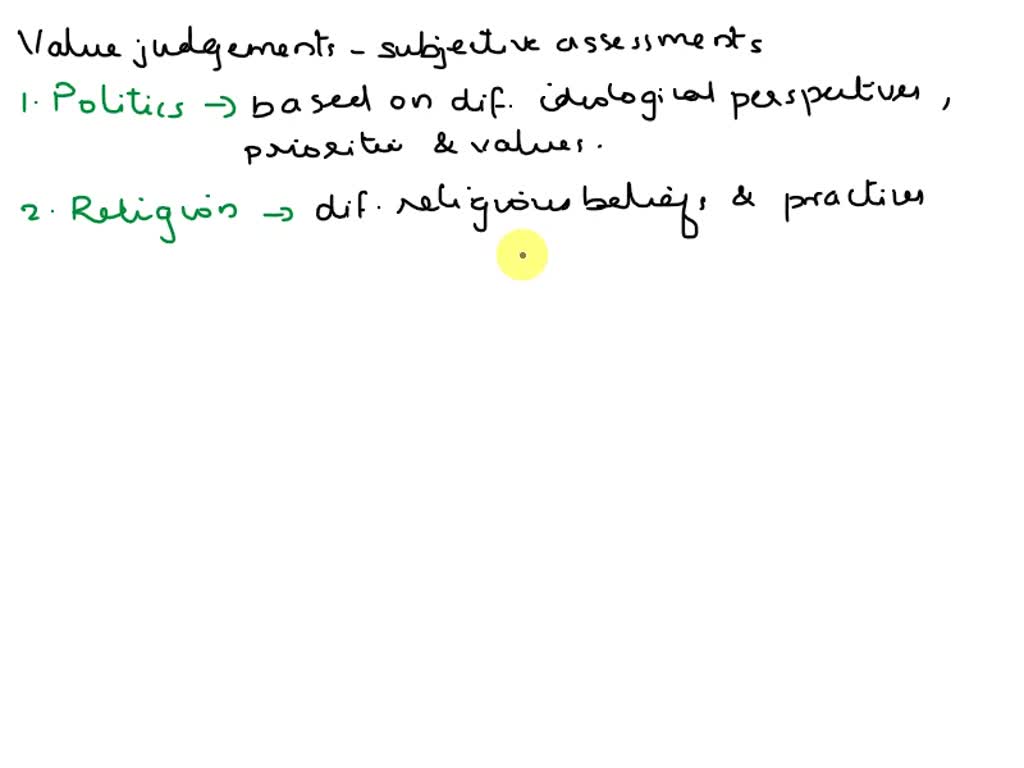 Value judgements - subjective assessments
1. Politics → based on dif. ideological perspectives,
priorities & values.
2. Religion → dif. religious beliefs & practices